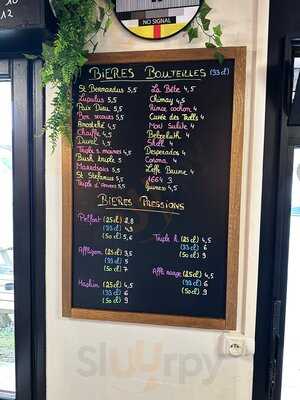 NO SIGNAL
12
BIERES BOUTEILLES (33 cl)
St Bernardus 5,5
Lupulus 5,5
Paix Dieu 5,5
Bon secours 5,5
Anosteké 4,5
Chouffe 4,5
Duvel 4,5
Triple 2 moines 4,5
Bush triple 5
Maredsous 5,5
St Stefanus 5,5
Triple d'Anvers 5,5
La Bête 4,5
Chimay 4,5
Rince cochon 4
Cuvée des Trolls 4
Mort subite 4
Skoll 4
Desperados 4
Corona 4
Leffe Brune 4
1664 3
Guiness 4,5
BIERES PRESSIONS
Pelfort (25cl) 2,8
(33cl) 4,3
(50cl) 5,6
Affligem (25cl) 3,5
(33cl) 5
(50cl) 7
Hapkin (25cl) 4,5
(33cl) 6
(50cl) 9
Triple K (25cl) 4,5
(33cl) 6
(50cl) 9
Affli (25cl) 4,5
(33cl) 6
(50cl) 9
Sluurpy